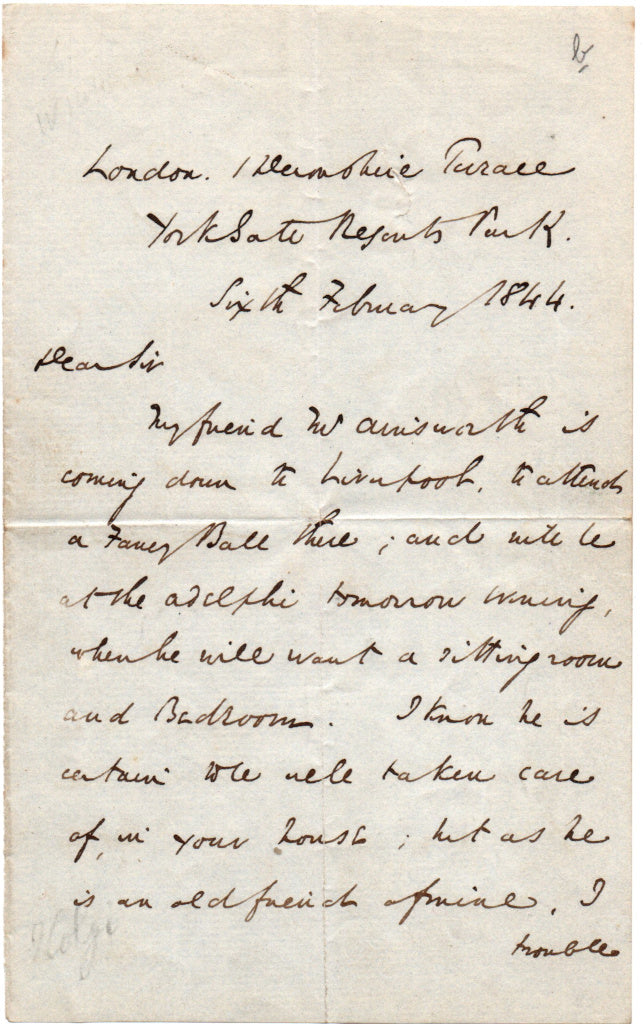 b,
London. 1 Devonshire Terrace
York Gate Regents Park.
Sixth February 1844.
Dear Sir
My friend Mr Ainsworth is
coming down to Liverpool, to attend
a Fancy Ball there; and will be
at the Adelphi tomorrow evening,
when he will want a sitting room
and Bedroom. I know he is
certain to be well taken care
of, in your house; but as he
is an old friend of mine, I
trouble